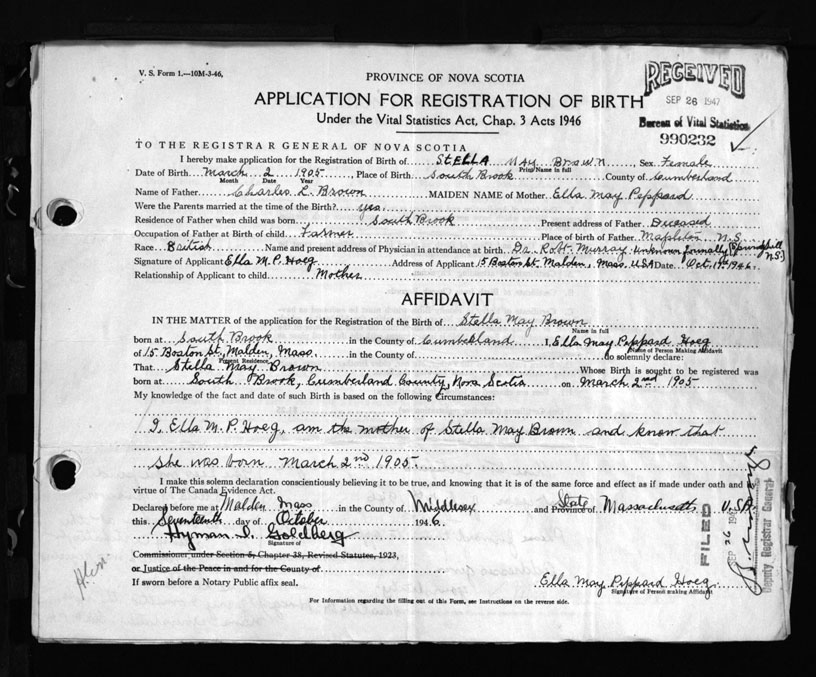 V. S. Form 1.—10M-3-46.
PROVINCE OF NOVA SCOTIA
RECEIVED
SEP 26 1947
Bureau of Vital Statistics
990232
APPLICATION FOR REGISTRATION OF BIRTH
Under the Vital Statistics Act, Chap. 3 Acts 1946
TO THE REGISTRAR GENERAL OF NOVA SCOTIA
I hereby make application for the Registration of Birth of STELLA May Brown, Sex Female
Print Name in full
Date of Birth March 2 1905 Place of Birth South Brook County of Cumberland
Month Date Year
Name of Father Charles L. Brown MAIDEN NAME of Mother Ella May Peppard
Were the Parents married at the time of the Birth? yes
Residence of Father when child was born South Brook Present address of Father Deceased
Occupation of Father at Birth of child Farmer Place of birth of Father Mapleton N.S.
Race British Name and present address of Physician in attendance at birth Dr Robt Murray unknown formally (Springhill N.S.)
Signature of Applicant Ella M. P. Hoeg Address of Applicant 15 Boston St. Malden, Mass. USA Date Oct 17th 1946.
Relationship of Applicant to child Mother
AFFIDAVIT
IN THE MATTER of the application for the Registration of the Birth of Stella May Brown
Name in full
born at South Brook in the County of Cumberland I, Ella May Peppard Hoeg
Name of Person Making Affidavit
of 15 Boston St, Malden, Mass. in the County of do solemnly declare:
Present Residence
That Stella May Brown Whose Birth is sought to be registered was
born at South Brook, Cumberland County, Nova Scotia on March 2nd 1905
My knowledge of the fact and date of such Birth is based on the following Circumstances:
I, Ella M. P. Hoeg, am the mother of Stella May Brown and know that
she was born March 2nd 1905.
I make this solemn declaration conscientiously believing it to be true, and knowing that it is of the same force and effect as if made under oath and by
virtue of The Canada Evidence Act.
Declared before me at Malden Mass in the County of Middlesex and Province of State Massachusetts U.S.A.
this Seventeenth day of October 1946.
Hyman I. Goldberg
Signature of
Commissioner under Section 5, Chapter 38, Revised Statutes, 1923,
or Justice of the Peace in and for the County of
If sworn before a Notary Public affix seal.
Ella May Peppard Hoeg.
Signature of Person making Affidavit
For Information regarding the filling out of this Form, see Instructions on the reverse side.
FILED
SEP 26 1947
Deputy Registrar General